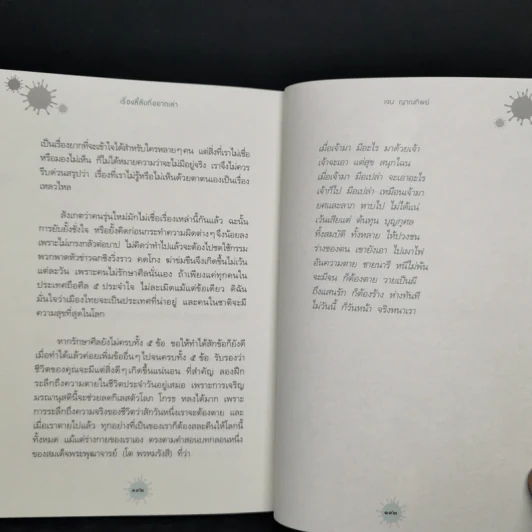 เรื่องลี้ลับที่อยากเล่า
เป็นเรื่องยากที่จะเข้าใจได้สำหรับใครหลายๆคน แต่สิ่งที่เราไม่เชื่อ
หรือมองไม่เห็น ก็ไม่ได้หมายความว่าจะไม่มีอยู่จริง เราจึงไม่ควร
รีบด่วนสรุปว่า เรื่องที่เราไม่รู้หรือไม่เห็นด้วยตาตนเองเป็นเรื่อง
เหลวไหล
สังเกตว่าคนรุ่นใหม่มักไม่เชื่อเรื่องเหล่านี้กันแล้ว ฉะนั้น
การยับยั้งชั่งใจ หรือยั้งคิดก่อนกระทำความผิดต่างๆจึงน้อยลง
เพราะไม่เกรงกลัวต่อบาป ไม่คิดว่าทำไปแล้วจะต้องไปชดใช้กรรม
พวกพาดหัวข่าวฉกชิงวิ่งราว คดโกง ฆ่าข่มขืนจึงเกิดขึ้นไม่เว้น
แต่ละวัน เพราะคนไม่รักษาศีลนั่นเอง ถ้าเพียงแค่ทุกคนใน
ประเทศถือศีล ๕ ประจำใจ ไม่ละเมิดแม้แต่ข้อเดียว ดิฉัน
มั่นใจว่าเมืองไทยจะเป็นประเทศที่น่าอยู่ และคนในชาติจะมี
ความสุขที่สุดในโลก
หากรักษาศีลยังไม่ครบทั้ง ๕ ข้อ ขอให้ทำได้สักข้อก็ยังดี
เมื่อทำได้แล้วค่อยเพิ่มข้ออื่นๆไปจนครบทั้ง ๕ ข้อ รับรองว่า
ชีวิตของคุณจะมีแต่สิ่งดีๆเกิดขึ้นแน่นอน ที่สำคัญ ลองฝึก
ระลึกถึงความตายในชีวิตประจำวันอยู่เสมอ เพราะการเจริญ
มรณานุสตินี้จะช่วยลดกิเลสตัวโลภ โกรธ หลงได้มาก เพราะ
การระลึกถึงความจริงของชีวิตว่าสักวันหนึ่งเราจะต้องตาย และ
เมื่อเราตายไปแล้ว ทุกอย่างที่เป็นของเราก็ต้องสละคืนให้โลกนี้
ทั้งหมด แม้แต่ร่างกายของเราเอง ตรงตามคำสอนบทกลอนหนึ่ง
ของสมเด็จพระพุฒาจารย์ (โต พรหมรังสี) ที่ว่า
เจน ญาณทิพย์
เมื่อเจ้ามา มีอะไร มาด้วยเจ้า
เจ้าจะเอา แต่สุข สนุกไฉน
เมื่อเจ้ามา มือเปล่า จะเอาอะไร
เจ้าก็ไป มือเปล่า เหมือนเจ้ามา
ยศและลาภ หาบไป ไม่ได้แน่
เว้นเสียแต่ ต้นทุน บุญกุศล
ทิ้งสมบัติ ทั้งหลาย ให้ปวงชน
ร่างของตน เขายังเอา ไปเผาไฟ
อันความตาย ชายนารี หนีไม่พ้น
จะมีจน ก็ต้องตาย วายเป็นผี
ถึงแสนรัก ก็ต้องร้าง ห่างทันที
ไม่วันนี้ ก็วันหน้า จริงหนาเรา